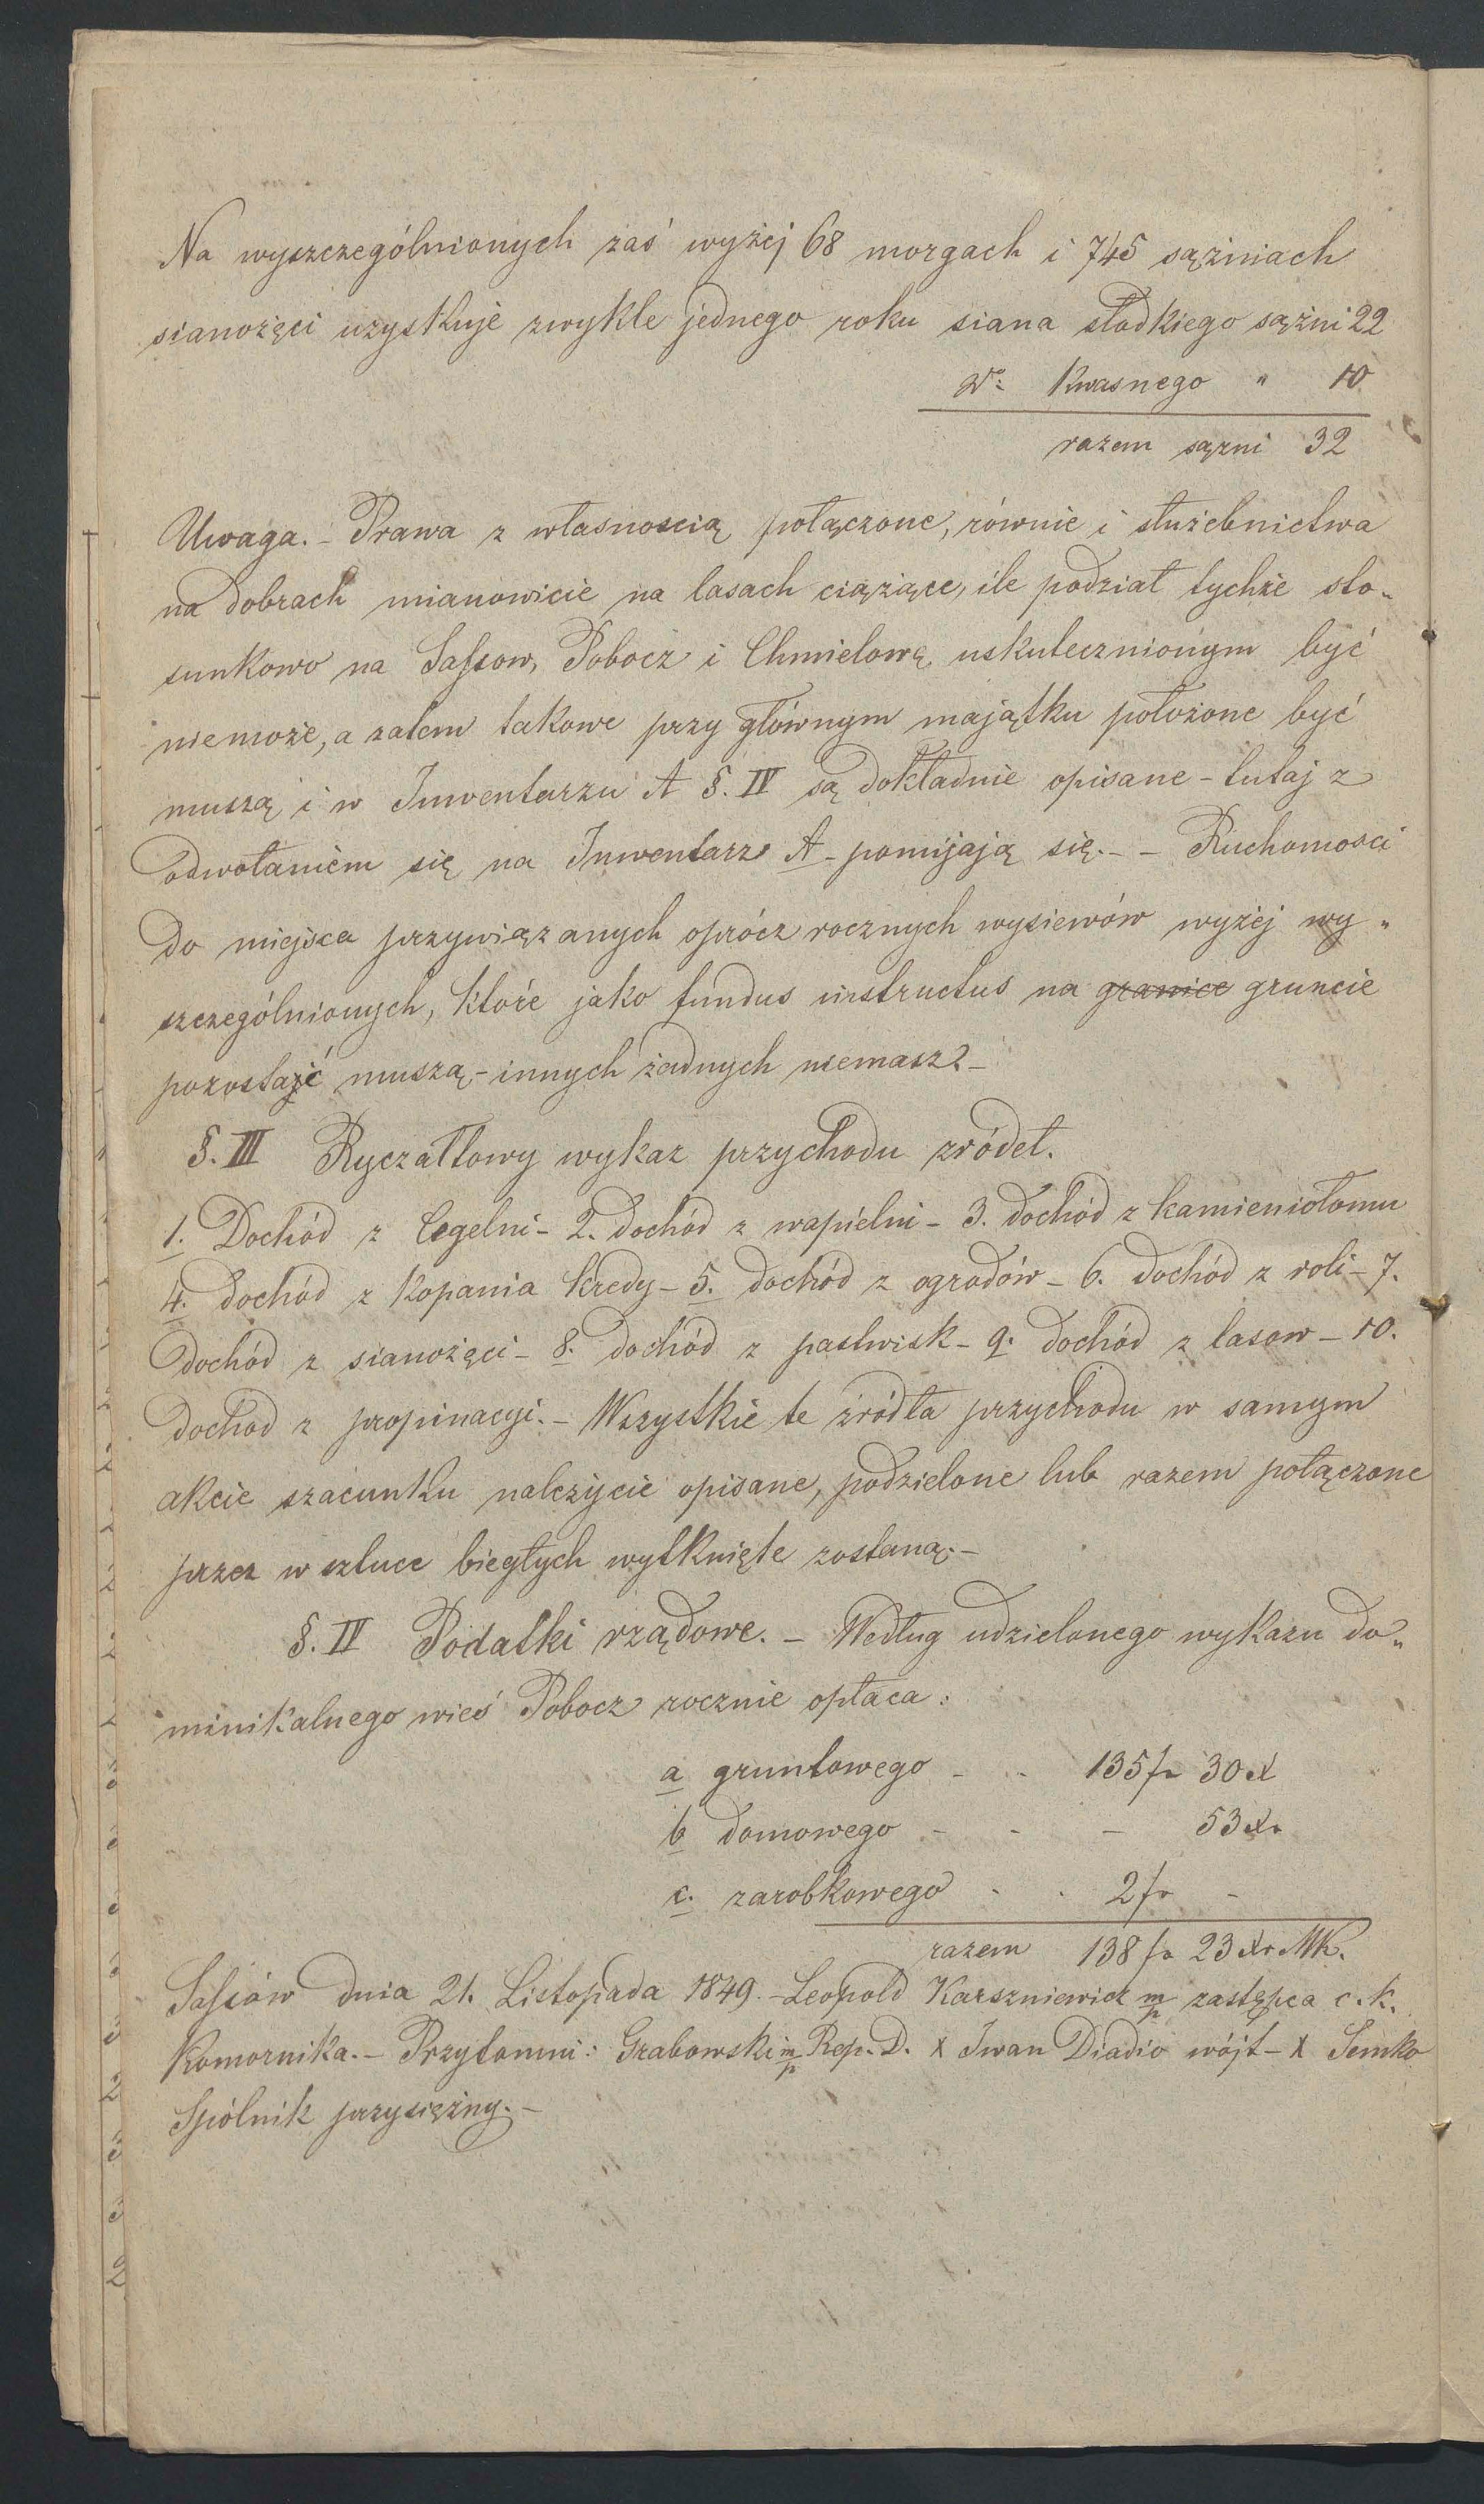 Na wyszczególnionych zaś wyżej 68 morgach i 745 sążniach
sianożęci uzyskuje zwykle jednego roku siana słodkiego sążni 22
do: kwasnego " 10
razem sązni 32
Uwaga. - Prawa z własnoscią połączone, równie i służebnictwa
na dobrach mianowicie na lasach ciążące, ile podział tychże sto-
sunkowo na Sassow, Pobocz i Chmielową uskutecznionym być
niemoże, a zatem takowe przy głównym majątku położone być
muszą i w Inwentarzu A §. IV są dokładnie opisane - tutaj z
odwołaniem się na Inwentarz A - pomijają się. - - Ruchomosci
do miejsca przywiązanych oprócz rocznych wysiewów wyżej wy-
szczególnionych, które jako fundus instructus na granice gruncie
pozostać muszą - innych żadnych niemasz. -
§. III Ryczałtowy wykaz przychodu zródeł.
1. Dochód z Cegelni - 2. dochód z wapielni - 3. dochód z kamieniołomu
4. dochód z kopania kredy - 5. dochód z ogrodów - 6. dochód z roli - 7.
dochód z sianożęci - 8. dochód z pastwisk - 9. dochód z lasow - 10.
dochod z propinacyi. - Wszystkie te żródła przychodu w samym
akcie szacunku należycie opisane, podzielone lub razem połączone
przez w sztuce biegłych wytknięte zostaną. -
§. IV Podatki rządowe. - Według udzielonego wykazu do-
minikalnego wieś Pobocz rocznie opłaca:
a gruntowego - - 135 fr 30 x
b domowego - - - 53 xr
c. zarobkowego - - 2 fr -
razem 138 fr 23 xr MK.
Sassów dnia 21. Listopada 1849. - Leopold Karszniewicz m/p zastępca c. k.
Komornika. - Przytomni: Grabowski m/p Rep. D. X Iwan Diadio wójt - X Semko
Spólnik przysiężny. -